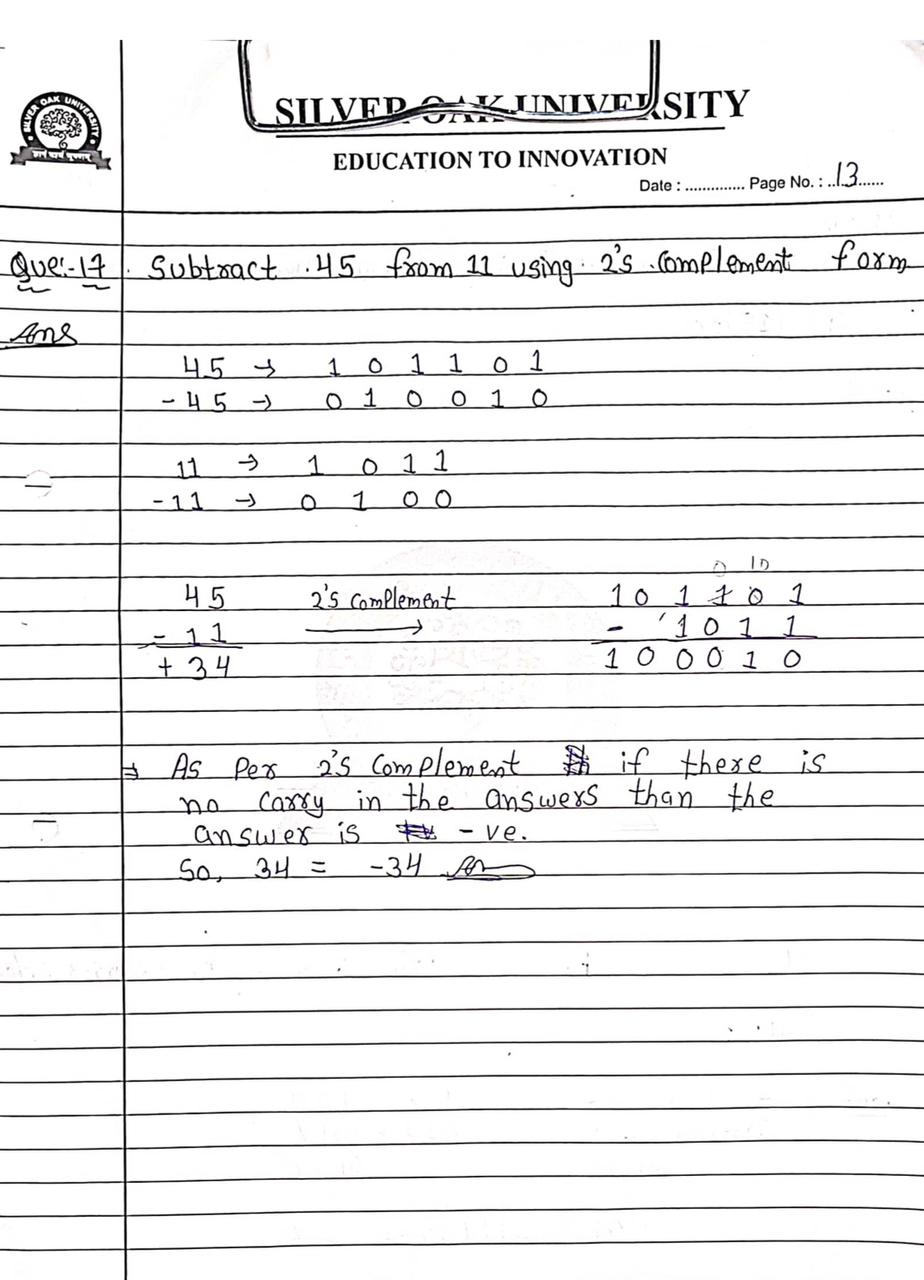 SILVER OAK UNIVERSITY
EDUCATION TO INNOVATION
Date : .............. Page No. : ..13......
Que:-17. Subtract 45 from 11 using 2's complement form
Ans
45 → 1 0 1 1 0 1
- 45 → 0 1 0 0 1 0
11 → 1 0 1 1
-11 → 0 1 0 0
0 10
45 2's complement 1 0 1 1 0 1
- 11 → - 1 0 1 1
+ 34 1 0 0 0 1 0
⇒ As Per 2's complement if there is
no carry in the answers than the
answer is -ve.
So, 34 = -34 Ans